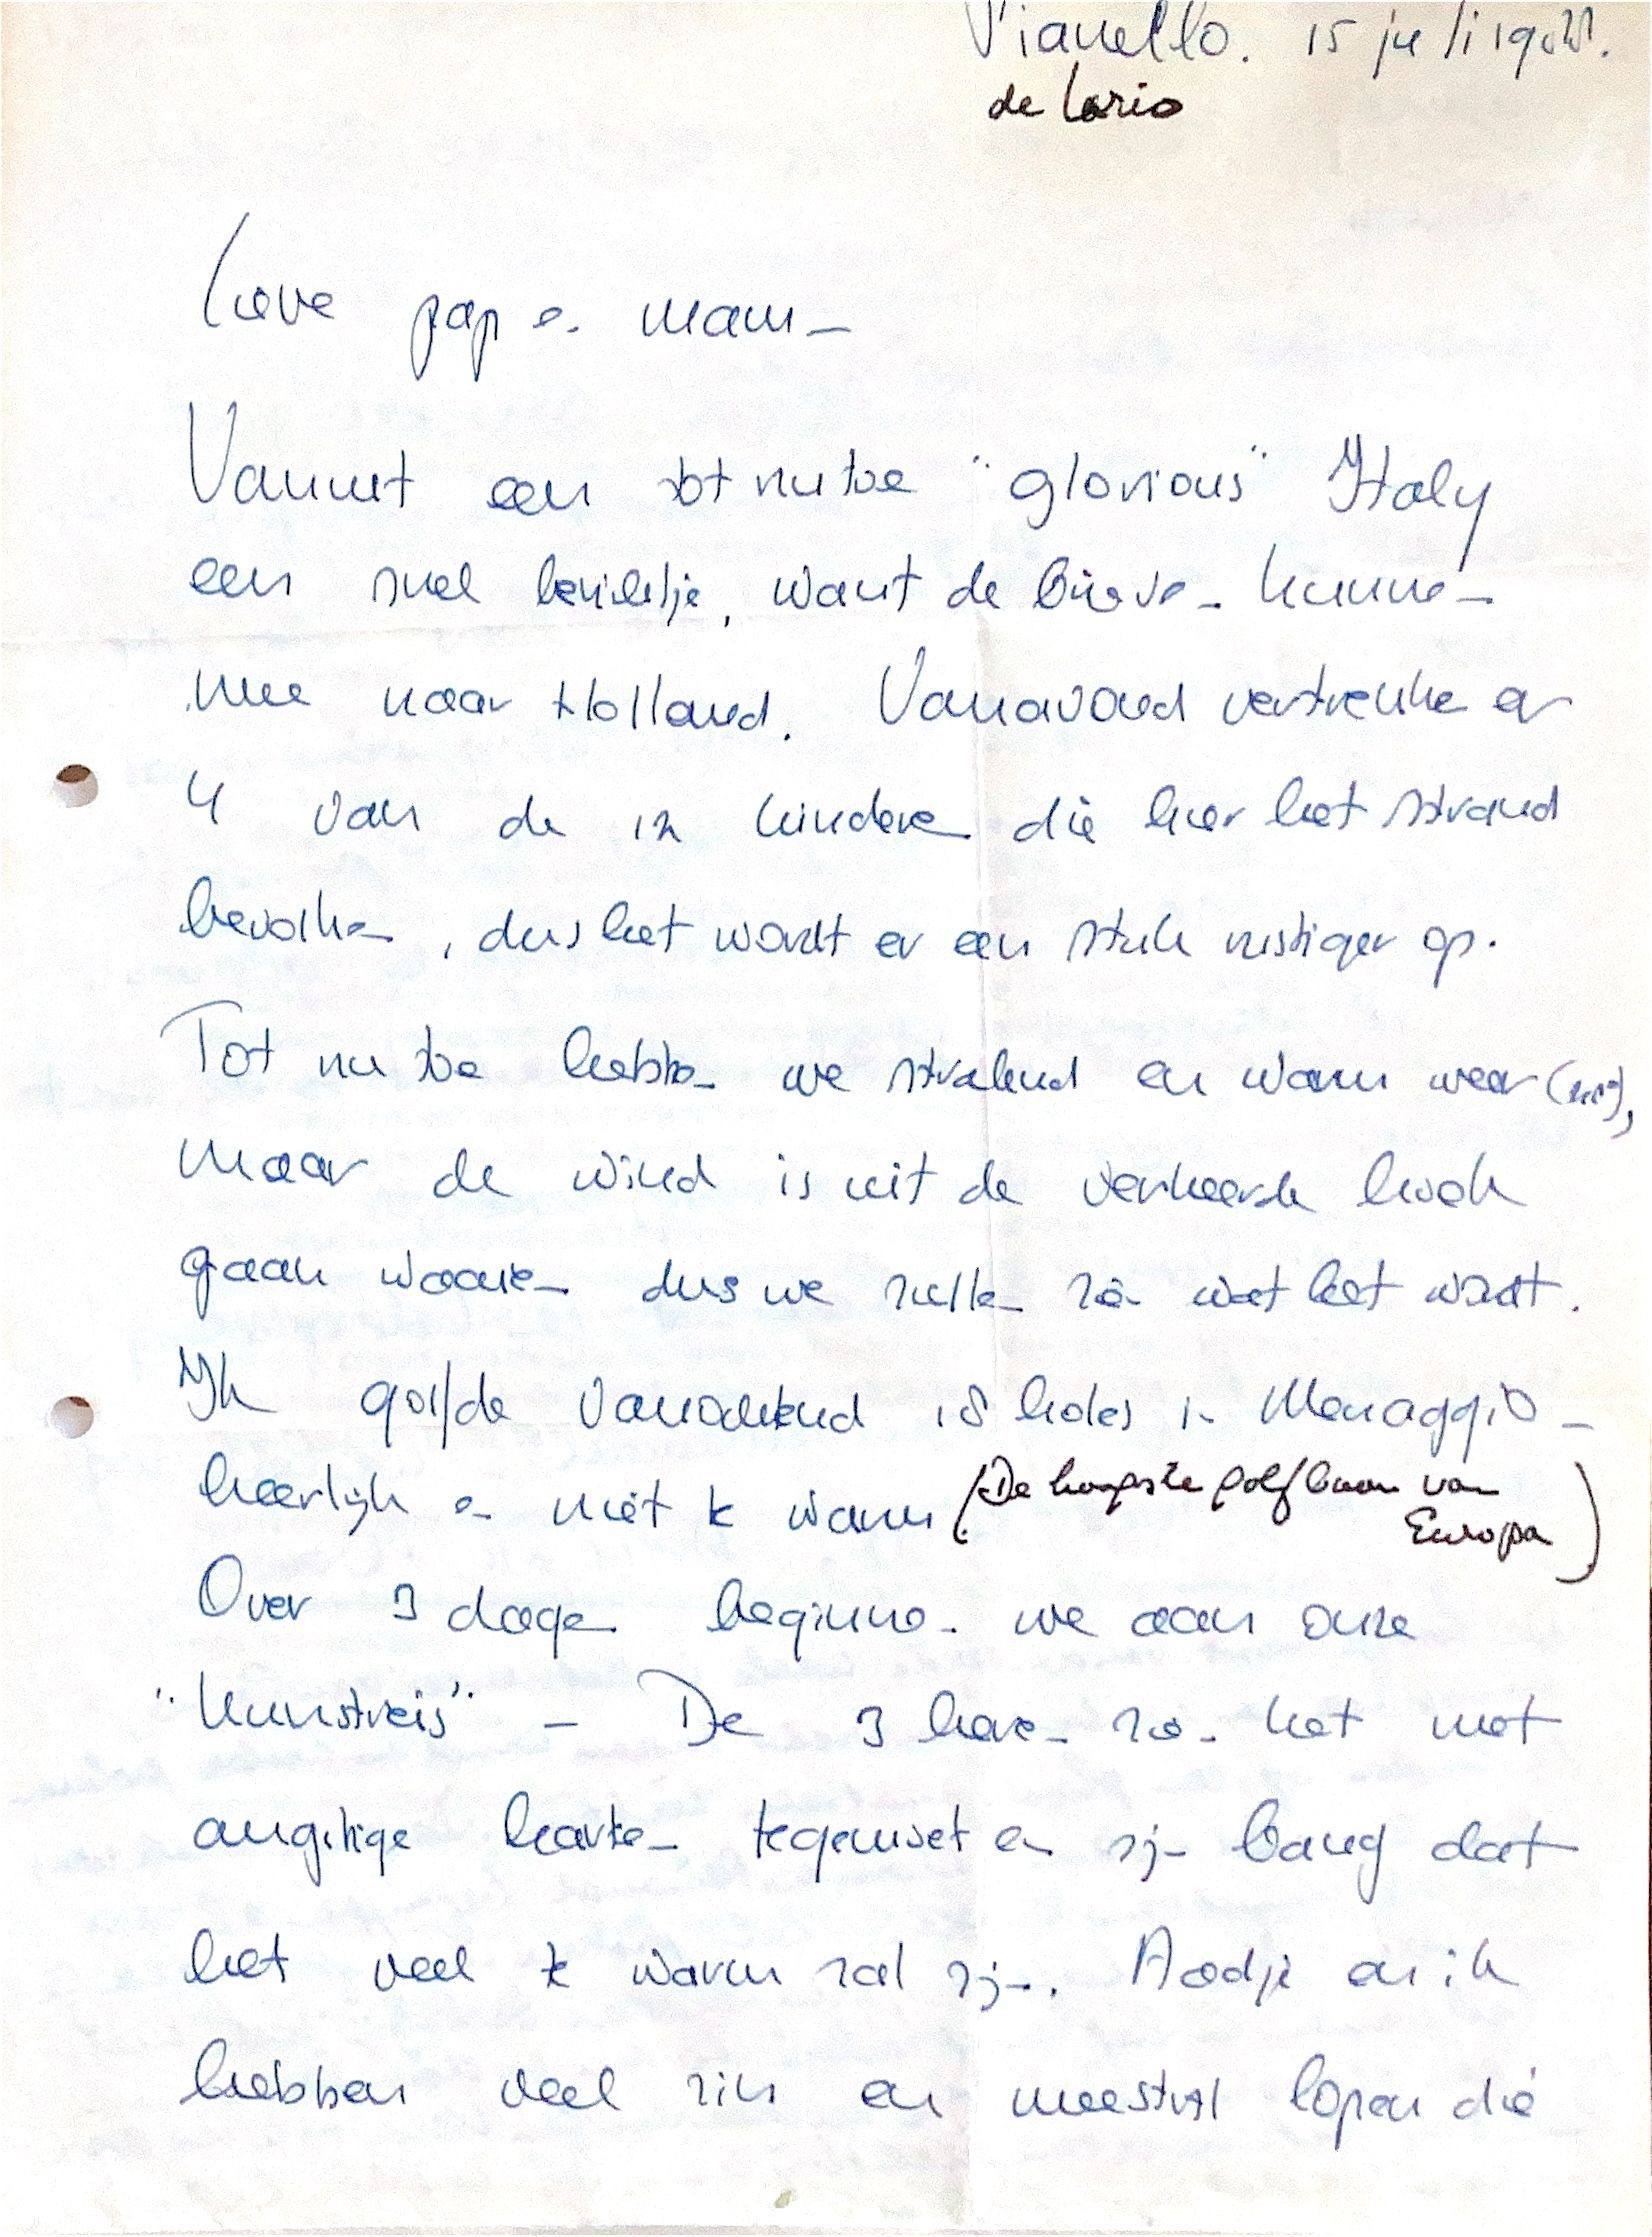 Pianello. 15 juli
de Lario
Lieve pap en mam -
Vanuit een tot nu toe "glorious" Italy
een snel berichtje, want de brieven kunnen
mee naar Holland. Vanavond vertrekken er
4 van de 12 kinderen die hier het strand
bevolken, dus het wordt er een stuk rustiger op.
Tot nu toe hebben we stralend en warm weer
maar de wind is uit de verkeerde hoek
gaan waaien dus we zullen zien wat het wordt.
Ik golfde vanochtend 18 holes in Menaggio -
heerlijk en niet te warm (De hoogste golfbaan van
Europa)
Over 3 dagen beginnen we aan onze
"kunstreis" - De 3 heren zien het met
angstige harten tegemoet en zijn bang dat
het veel te warm zal zijn. Aadje en ik
hebben veel zin en meestal lopen die